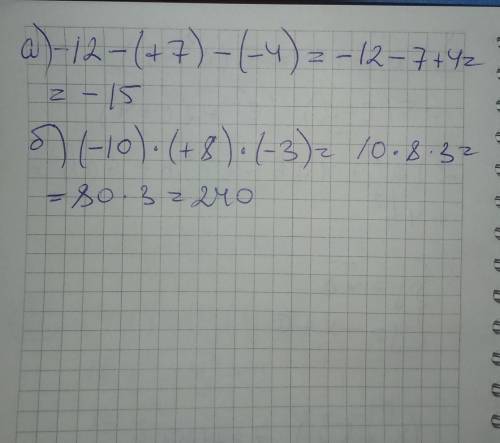 а) -12 - (+7) - (-4) = -12 - 7 + 4 =
= -15
б) (-10) · (+8) · (-3) = 10 · 8 · 3 =
= 80 · 3 = 240